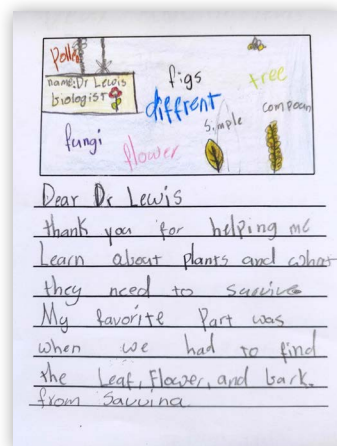 Pollin
name: Dr Lewis
biologist
figs
tree
diffrent
simple
compoun
fungi
flower
Dear Dr Lewis
thank you for helping me
Learn about plants and what
they need to survive
My favorite Part was
when we had to find
the Leaf, Flower, and bark.
from Savvina